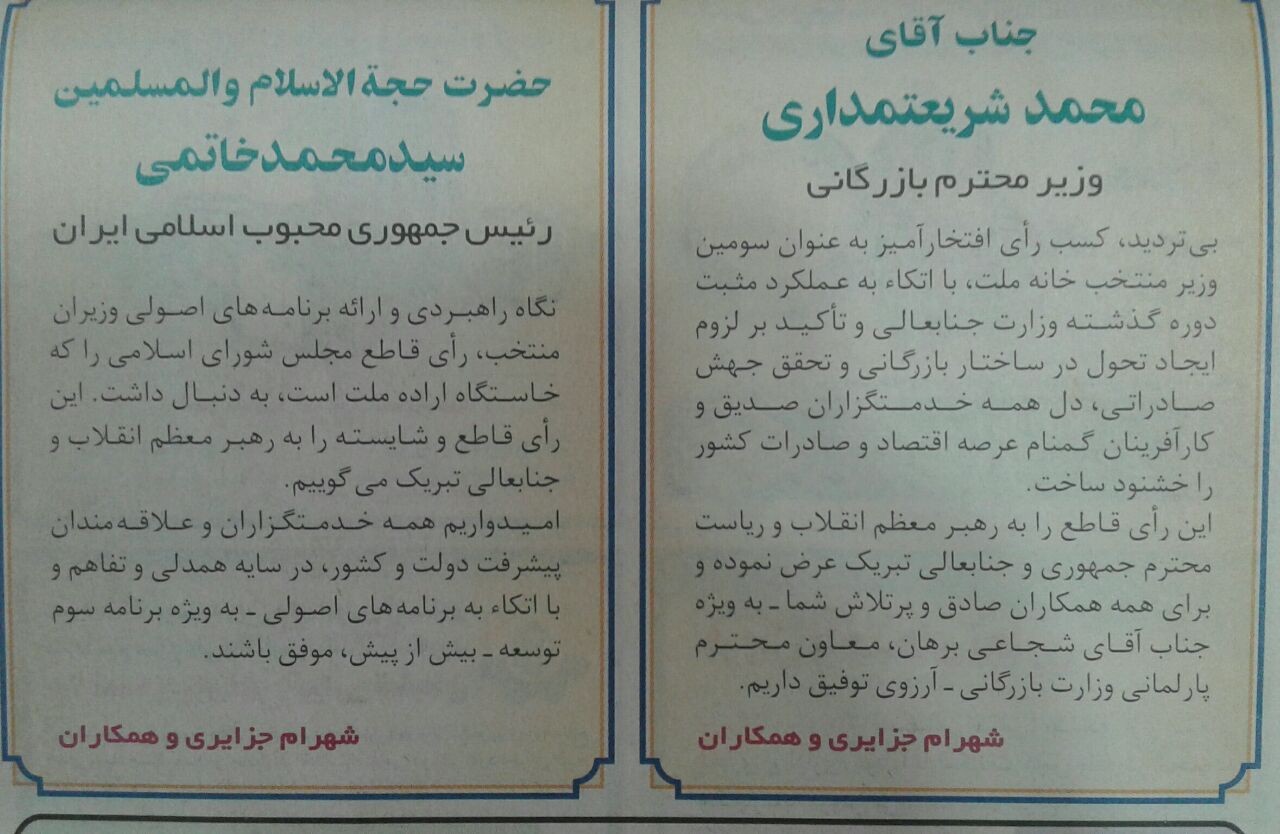 جناب آقای
محمد شریعتمداری
وزیر محترم بازرگانی
بی‌تردید، کسب رأی افتخارآمیز به عنوان سومین
وزیر منتخب خانه ملت، با اتکاء به عملکرد مثبت
دوره گذشته وزارت جنابعالی و تأکید بر لزوم
ایجاد تحول در ساختار بازرگانی و تحقق جهش
صادراتی، دل همه خدمتگزاران صدیق و
کارآفرینان گمنام عرصه اقتصاد و صادرات کشور
را خشنود ساخت.
این رأی قاطع را به رهبر معظم انقلاب و ریاست
محترم جمهوری و جنابعالی تبریک عرض نموده و
برای همه همکاران صادق و پرتلاش شما ـ به ویژه
جناب آقای شجاعی برهان، معاون محترم
پارلمانی وزارت بازرگانی ـ آرزوی توفیق داریم.
شهرام جزایری و همکاران
حضرت حجة الاسلام والمسلمین
سیدمحمدخاتمی
رئیس جمهوری محبوب اسلامی ایران
نگاه راهبردی و ارائه برنامه‌های اصولی وزیران
منتخب، رأی قاطع مجلس شورای اسلامی را که
خاستگاه اراده ملت است، به دنبال داشت. این
رأی قاطع و شایسته را به رهبر معظم انقلاب و
جنابعالی تبریک می گوییم.
امیدواریم همه خدمتگزاران و علاقه‌مندان
پیشرفت دولت و کشور، در سایه همدلی و تفاهم و
با اتکاء به برنامه‌های اصولی ـ به ویژه برنامه سوم
توسعه ـ بیش از پیش، موفق باشند.
شهرام جزایری و همکاران